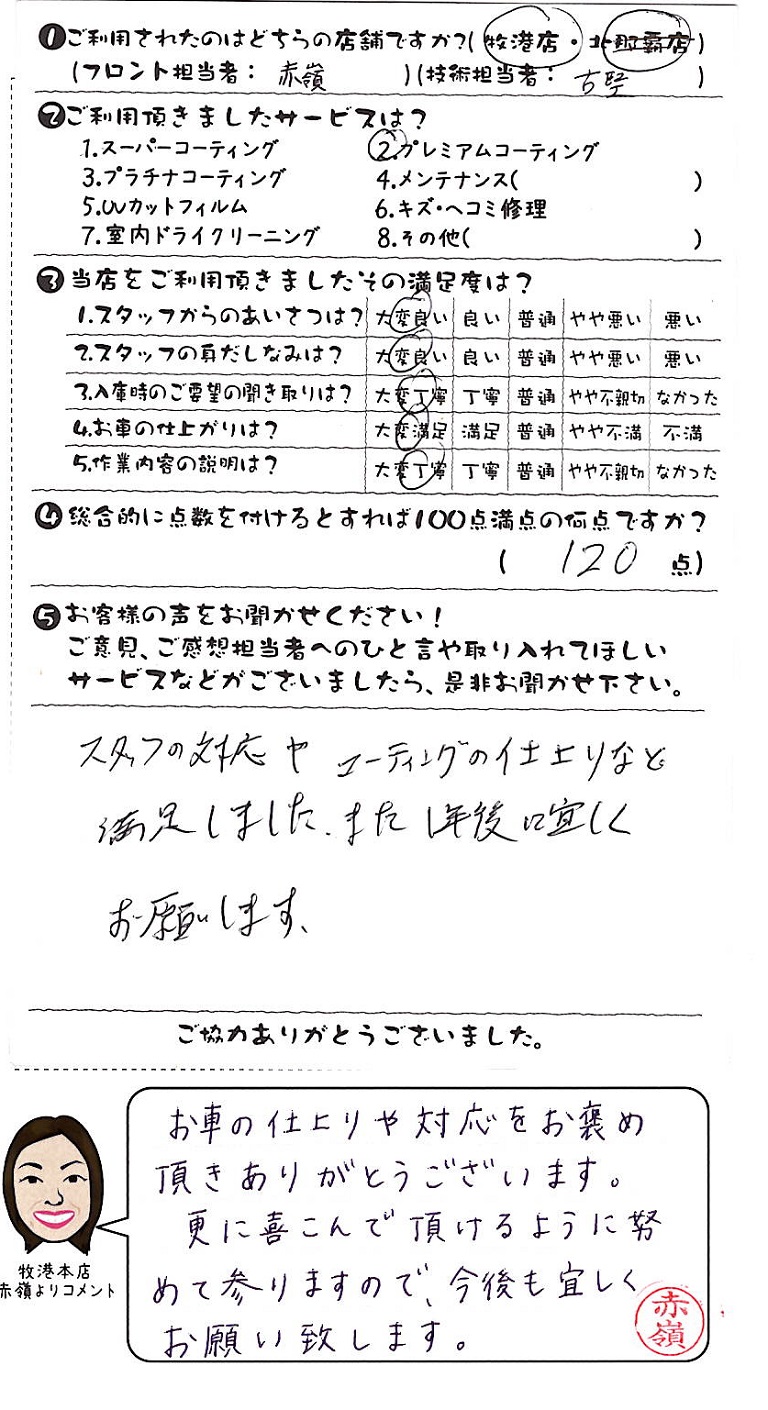 ❶ご利用されたのはどちらの店舗ですか?(牧港店・北那覇店)
(フロント担当者: 赤嶺 )(技術担当者: 古堅 )
❷ご利用頂きましたサービスは?
1.スーパーコーティング 2.プレミアムコーティング
3.プラチナコーティング 4.メンテナンス( )
5.UVカットフィルム 6.キズ・ヘコミ修理
7.室内ドライクリーニング 8.その他( )
❸当店をご利用頂きましたその満足度は?
1.スタッフからのあいさつは? 大変良い 良い 普通 やや悪い 悪い
2.スタッフの身だしなみは? 大変良い 良い 普通 やや悪い 悪い
3.入庫時のご要望の聞き取りは? 大変丁寧 丁寧 普通 やや不親切 なかった
4.お車の仕上がりは? 大変満足 満足 普通 やや不満 不満
5.作業内容の説明は? 大変丁寧 丁寧 普通 やや不親切 なかった
❹総合的に点数を付けるとすれば100点満点の何点ですか?
( 120 点)
❺お客様の声をお聞かせください!
ご意見、ご感想担当者へのひと言や取り入れてほしい
サービスなどがございましたら、是非お聞かせ下さい。
スタッフの対応や コーティングの仕上りなど
満足しました、また1年後に宜しく
お願いします、
ご協力ありがとうございました。
お車の仕上りや対応をお褒め
頂きありがとうございます。
更に喜こんで頂けるように努
めて参りますので、今後も宜しく
お願い致します。
赤嶺
牧港本店
赤嶺よりコメント